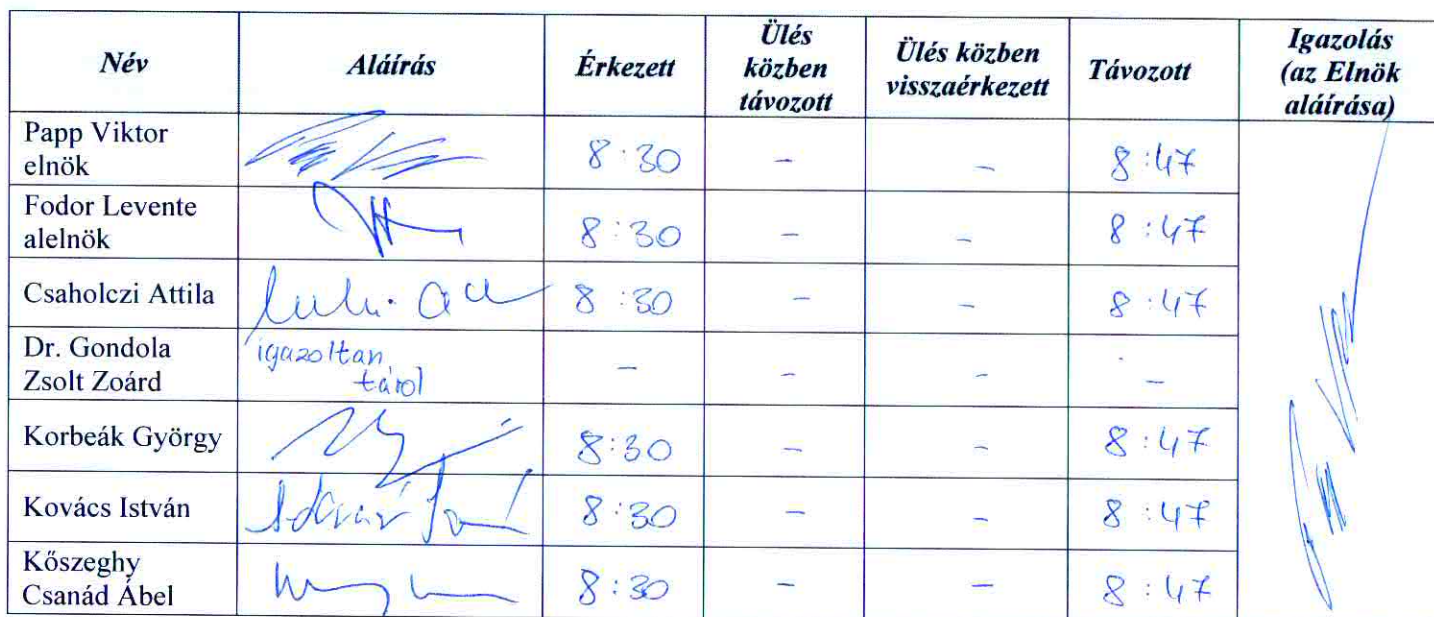 Név Aláírás Érkezett Ülés közben távozott Ülés közben visszaérkezett Távozott Igazolás (az Elnök aláírása)
Papp Viktor elnök 8:30 - - 8:47
Fodor Levente alelnök 8:30 - - 8:47
Csaholczi Attila 8:30 - - 8:47
Dr. Gondola Zsolt Zoárd igazoltan távol - - - -
Korbeák György 8:30 - - 8:47
Kovács István 8:30 - - 8:47
Kőszeghy Csanád Ábel 8:30 - - 8:47